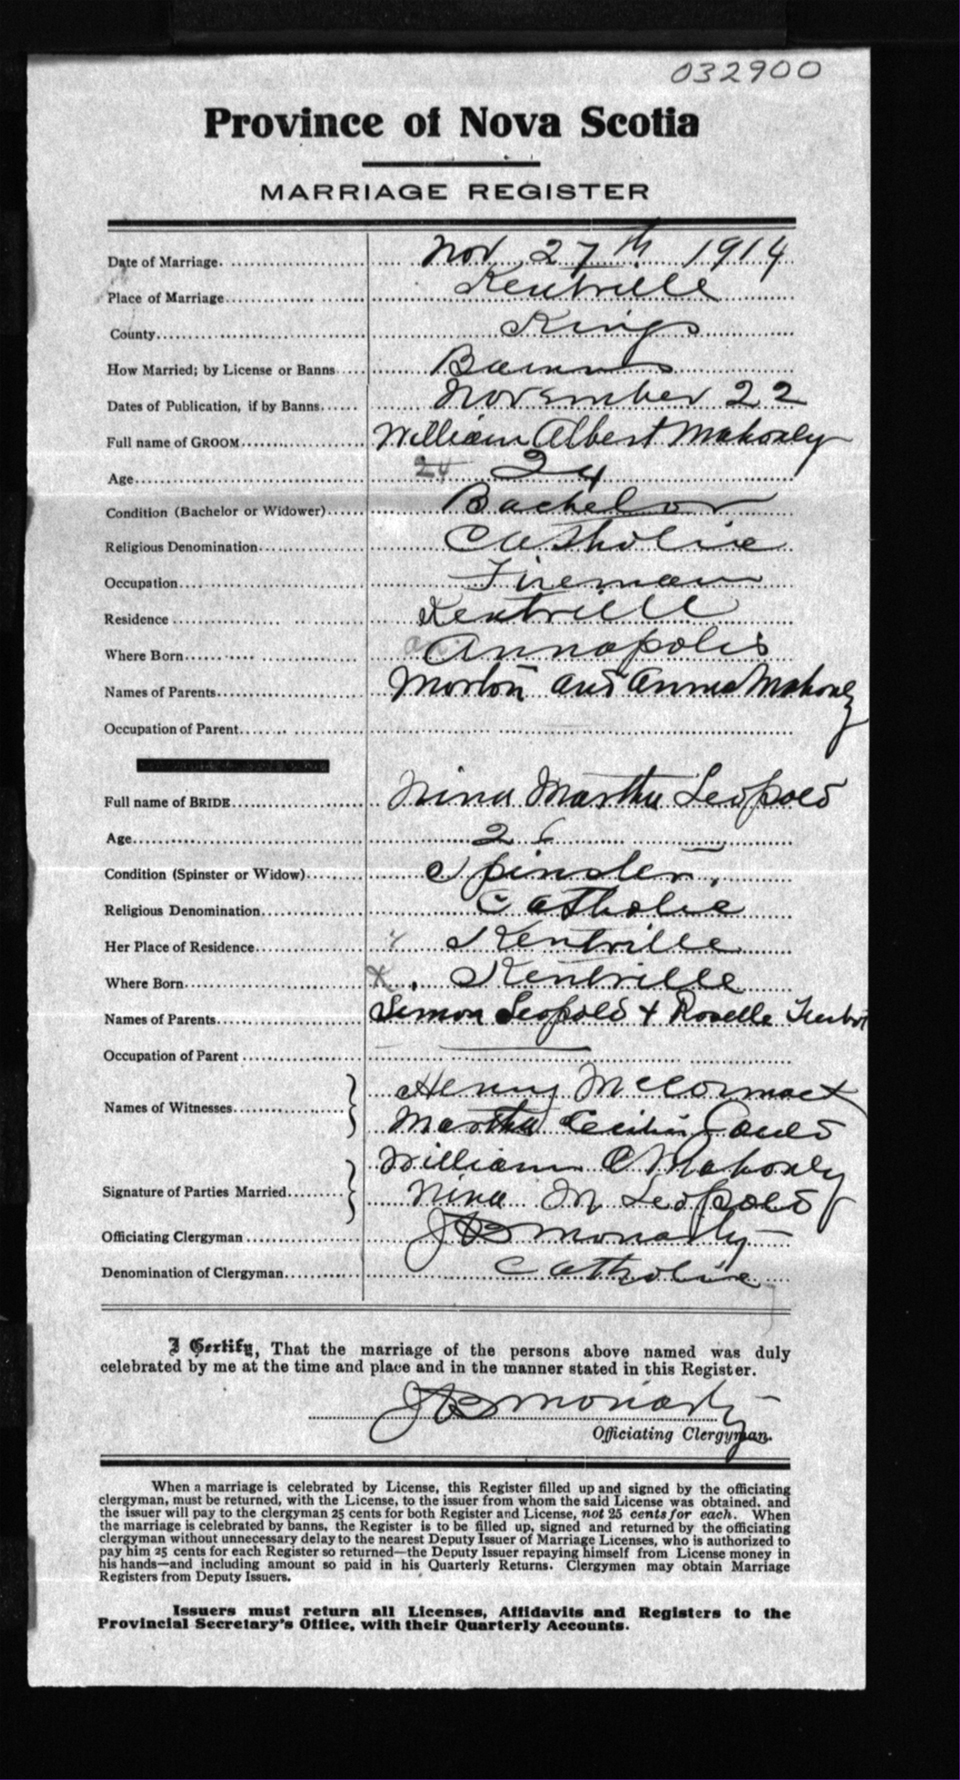 032900
Province of Nova Scotia
MARRIAGE REGISTER
Date of Marriage. Nov 27th 1914
Place of Marriage Kentville
County Kings
How Married; by License or Banns Banns
Dates of Publication, if by Banns November 22
Full name of GROOM William Albert Mahoney
Age 24 24
Condition (Bachelor or Widower) Bachelor
Religious Denomination Catholic
Occupation Fireman
Residence Kentville
Where Born Annapolis
Names of Parents Morton and Annie Mahoney
Occupation of Parent
Full name of BRIDE Nina Martha Leopold
Age 26
Condition (Spinster or Widow) Spinster
Religious Denomination Catholic
Her Place of Residence Kentville
Where Born x Kentville
Names of Parents Simon Leopold + Roselle
Occupation of Parent
Names of Witnesses Henry McCormack
Martha Cecilia
Signature of Parties Married William A Mahoney
Nina M Leopold
Officiating Clergyman JB Moriarty
Denomination of Clergyman Catholic
I Certify, That the marriage of the persons above named was duly
celebrated by me at the time and place and in the manner stated in this Register.
JB Moriarty
Officiating Clergyman.
When a marriage is celebrated by License, this Register filled up and signed by the officiating
clergyman, must be returned, with the License, to the issuer from whom the said License was obtained, and
the issuer will pay to the clergyman 25 cents for both Register and License, not 25 cents for each. When
the marriage is celebrated by banns, the Register is to be filled up, signed and returned by the officiating
clergyman without unnecessary delay to the nearest Deputy Issuer of Marriage Licenses, who is authorized to
pay him 25 cents for each Register so returned—the Deputy Issuer repaying himself from License money in
his hands—and including amount so paid in his Quarterly Returns. Clergymen may obtain Marriage
Registers from Deputy Issuers.
Issuers must return all Licenses, Affidavits and Registers to the
Provincial Secretary's Office, with their Quarterly Accounts.